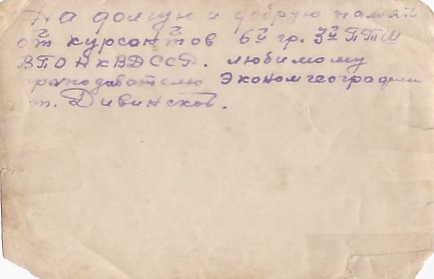 На долгую и добрую память
от курсантов 6й гр. 3й ПТШ
ВПО НКВД СССР. любимому
преподавателю Экономгеографии
т. Дивинской.